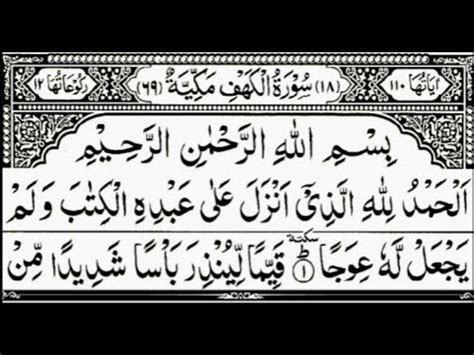 اٰيَاتُهَا ١١٠ (١٨) سُوْرَةُ الْكَهْفِ مَكِّيَّةٌ (٦٩) رُكُوْعَاتُهَا ١٢
بِسْمِ اللهِ الرَّحْمٰنِ الرَّحِيْمِ
اَلْحَمْدُ لِلّٰهِ الَّذِيْۤ اَنْزَلَ عَلٰى عَبْدِهِ الْكِتٰبَ وَلَمْ
يَجْعَلْ لَّهٗ عِوَجًا ؕ ١ سكتة قَيِّمًا لِّيُنْذِرَ بَاْسًا شَدِيْدًا مِّنْ